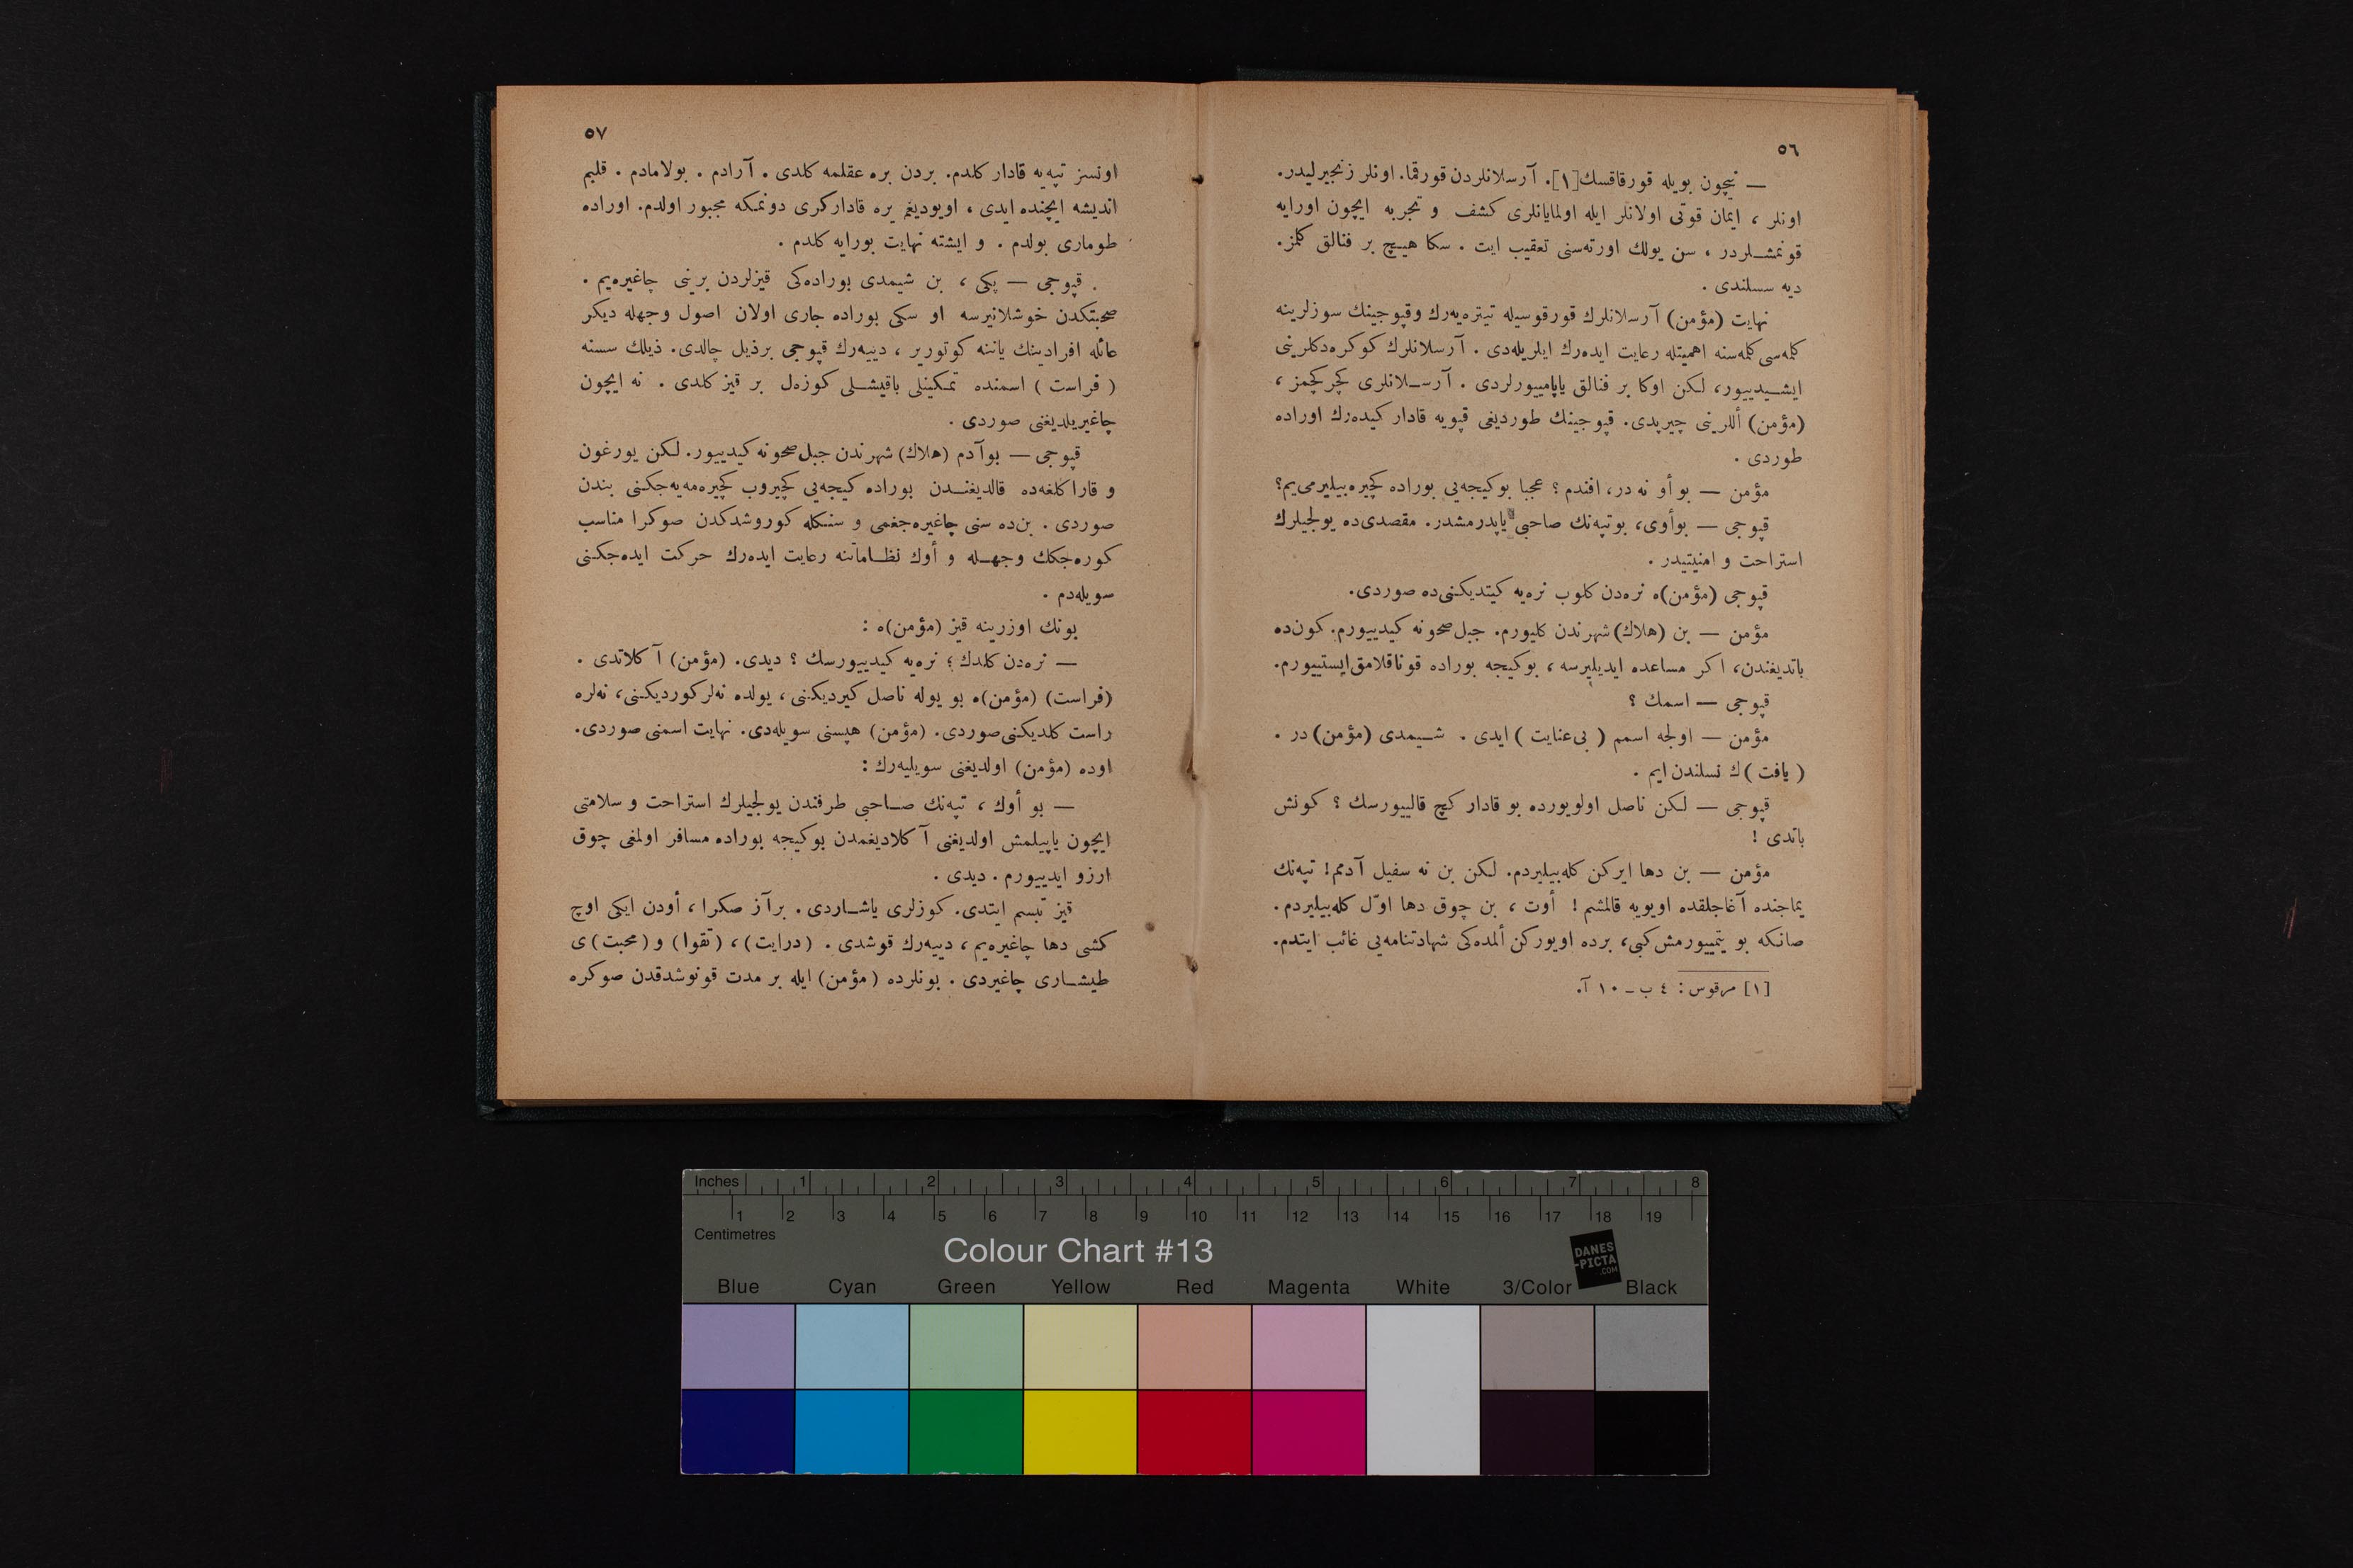 ٥٦
— نیچون بویله قورقاقسك[١]. آرسلانلردن قورقما. اونلر زنجیرلیدر.
اونلر ، ایمان قوتی اولانلر ایله اولمایانلری كشف و تجربه ایچون اورایه
قونمشلردر ، سن یولك اورته‌سنی تعقیب ایت . سكا هیچ بر فنالق كلمز.
دیه سسلندی .
نهایت (مؤمن) آرسلانلرك قورقوسیله تیتره‌یه‌رك وقپوجینك سوزلرینه
كله‌سی كله‌سنه اهمیتله رعایت ایده‌رك ایلریله‌دی . آرسلانلرك كوكره‌دكلرینی
ایشیدییور، لكن اوكا بر فنالق یاپامییورلردی . آرسلانلری كچر كچمز ،
(مؤمن) أللرینی چیرپدی. قپوجینك طوردیغی قپویه قادار كیده‌رك اوراده
طوردی .
مؤمن — بو أو نه در، افندم ؟ عجبا بوكیجه‌یی بوراده كچیره بیلیرمی‌یم؟
قپوجی — بوأوی، بوتپه‌نك صاحبی یاپدرمشدر. مقصدی‌ده یولجیلرك
استراحت و امنیتیدر .
قپوجی (مؤمن)ه نره‌دن كلوب نره‌یه كیتدیكنی‌ده صوردی.
مؤمن — بن (هلاك) شهرندن كلیورم. جبل صحونه كیدییورم. كون‌ده
باتدیغندن، اكر مساعده ایدیلیرسه ، بوكیجه بوراده قوناقلامق‌ایستییورم.
قپوجی — اسمك ؟
مؤمن — اولجه اسمم ( بی‌عنایت ) ایدی . شیمدی (مؤمن) در .
( یافت )ك نسلندن ایم .
قپوجی — لكن ناصل اولویورده بو قادار كچ قالییورسك ؟ كونش
باتدی !
مؤمن — بن دها ایركن كله‌بیلیردم. لكن بن نه سفیل آدمم! تپه‌نك
یماجنده آغاجلقده اویویه قالمشم ! أوت ، بن چوق دها اوّل كله‌بیلیردم.
صانكه بو یتمییورمش كبی، برده اویوركن ألمده‌كی شهادتنامه‌یی غائب ایتدم.
[١] مرقوس : ٤ ب ـ ١٠ آ.
٥٧
اونسز تپه‌یه قادار كلدم. بردن بره عقلمه كلدی . آرادم . بولامادم . قلبم
اندیشه ایچنده ایدی ، اویودیغم یره قادار كری دونمكه مجبور اولدم. اوراده
طوماری بولدم . و ایشته نهایت بورایه كلدم .
قپوجی — پكی ، بن شیمدی بوراده‌كی قیزلردن برینی چاغیره‌یم .
صحبتكدن خوشلانیرسه او سكی بوراده جاری اولان اصول وجهله دیكر
عائله افرادینك یاننه كوتوریر ، دییه‌رك قپوجی برذیل چالدی. ذیلك سسنه
( فراست ) اسمنده تمكینلی باقیشلی كوزه‌ل بر قیز كلدی . نه ایچون
چاغیریلدیغنی صوردی .
قپوجی — بوآدم (هلاك) شهرندن جبل صحونه كیدییور. لكن یورغون
و قاراكلغه‌ده قالدیغندن بوراده كیجه‌یی كچیروب كچیره‌مه‌یه‌جكنی بندن
صوردی . بن‌ده سنی چاغیره‌جغمی و سنكله كوروشدكدن صوكرا مناسب
كوره‌جكك وجهله و أوك نظاماتنه رعایت ایده‌رك حركت ایده‌جكنی
سویله‌دم .
بونك اوزرینه قیز (مؤمن)ه :
— نره‌دن كلدك ؟ نره‌یه كیدییورسك ؟ دیدی. (مؤمن) آكلاتدی .
(فراست) (مؤمن)ه بو یوله ناصل كیردیكنی، یولده نه‌لر كوردیكنی، نه‌لره
راست كلدیكنی صوردی. (مؤمن) هپسنی سویله‌دی. نهایت اسمنی صوردی.
اوده (مؤمن) اولدیغنی سویلیه‌رك :
— بو أوك ، تپه‌نك صاحبی طرفندن یولجیلرك استراحت و سلامتی
ایچون یاپیلمش اولدیغنی آكلادیغمدن بوكیجه بوراده مسافر اولمغی چوق
ارزو ایدییورم . دیدی .
قیز تبسم ایتدی. كوزلری یاشاردی . برآز صكرا ، أودن ایكی اوچ
كشی دها چاغیره‌یم ، دییه‌رك قوشدی . (درایت) ، (تقوا) و (محبت) ی
طیشاری چاغیردی . بونلرده (مؤمن) ایله بر مدت قونوشدقدن صوكره
Inches 1 2 3 4 5 6 7 8
1 2 3 4 5 6 7 8 9 10 11 12 13 14 15 16 17 18 19
Centimetres
Colour Chart #13
DANES
-PICTA
.COM
Blue Cyan Green Yellow Red Magenta White 3/Color Black